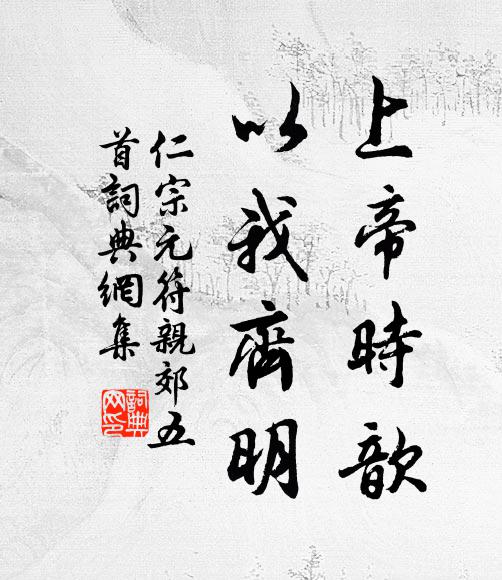 上帝時歆
以我齊明
仁宗元符親郊五
首詞典網集
詞典
网印